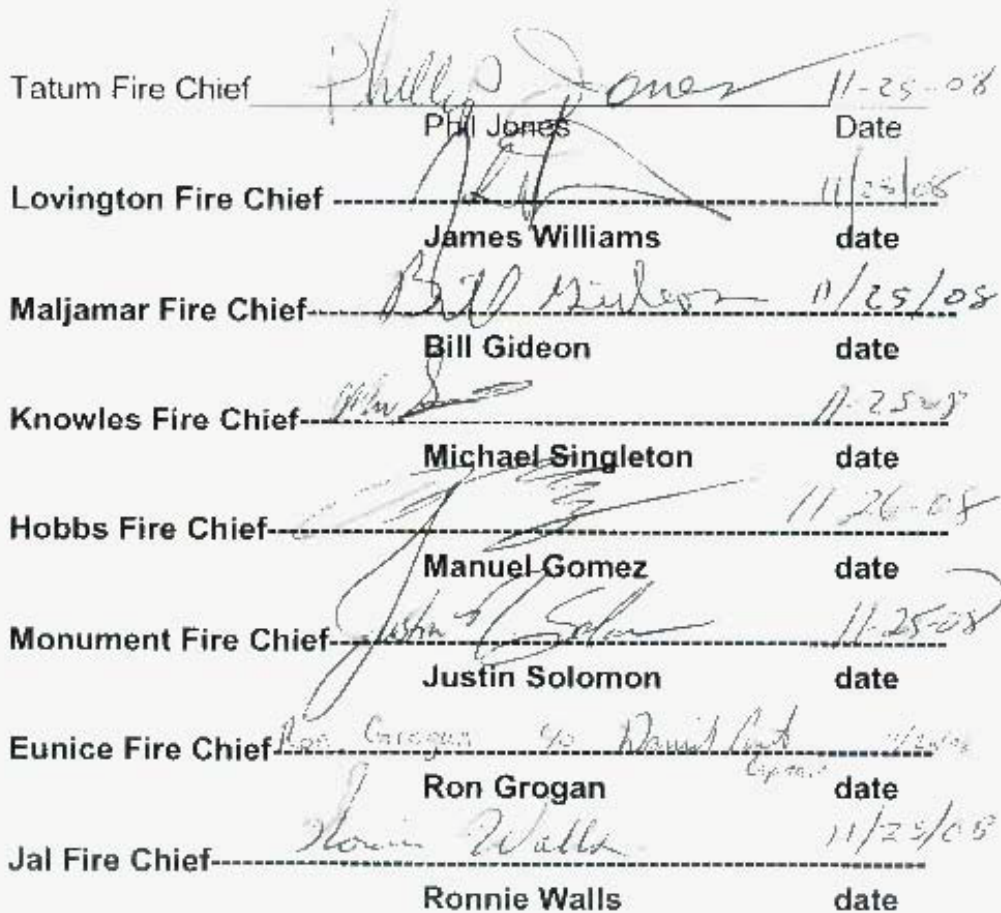 Tatum Fire Chief Phillip Jones 11-25-08
Phil Jones Date
Lovington Fire Chief 11/25/08
James Williams date
Maljamar Fire Chief Bill Gideon 11/25/08
Bill Gideon date
Knowles Fire Chief 11-25-08
Michael Singleton date
Hobbs Fire Chief 11-26-08
Manuel Gomez date
Monument Fire Chief Justin Solomon 11-25-08
Justin Solomon date
Eunice Fire Chief Ron Grogan David
Ron Grogan date
Jal Fire Chief Ronnie Walls 11/25/08
Ronnie Walls date